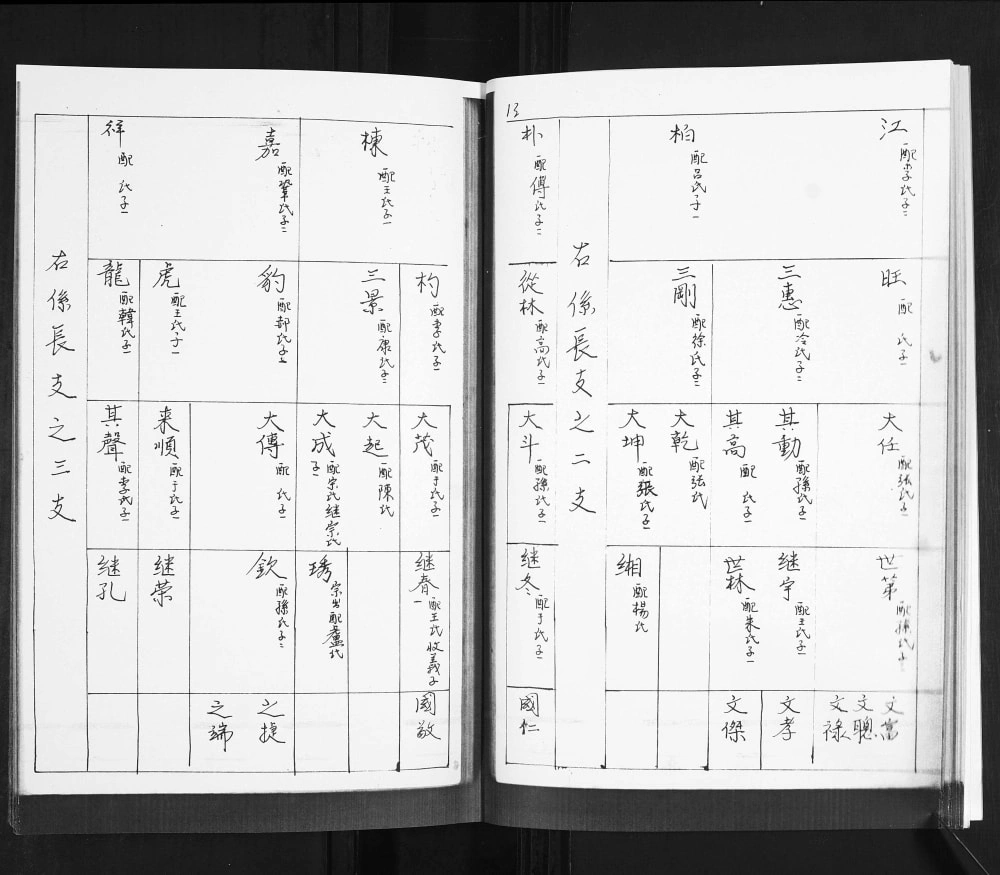 13
江 配李氏子二
柏 配呂氏子一
旺 配 氏子一
三惠 配冷氏子二
三剛 配徐氏子二
大任 配張氏子一
其動 配孫氏子一
其高 配 氏子一
大乾 配張氏
大坤 配張氏子一
世第 配孫氏子
继宇 配王氏子一
世林 配朱氏子一
缃 配楊氏
文富
文聰
文禄
文孝
文傑
右係長支之二支
朴 配傅氏子二
從林 配高氏子一
大斗 配孫氏子一
继冬 配于氏子一
國仁
棟 配王氏子一
嘉 配鞏氏子二
祥 配 氏子一
杓 配李氏子一
三景 配康氏子二
豹 配郝氏子
虎 配王氏子一
龍 配韓氏子一
大茂 配于氏子一
大起 配陳氏
大成 配宗氏继宗氏子一
大傅 配 氏子一
来順 配于氏子一
其聲 配李氏子一
继春 配王氏收義子一
琇 宗出配盧氏
欽 配孫氏子二
继荣
继孔
國敬
之捷
之瑞
右係長支之三支